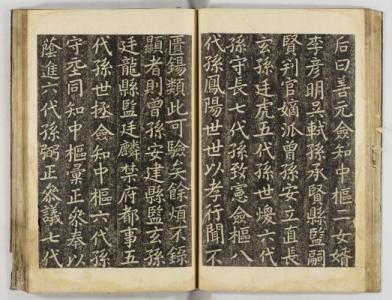 后曰善元僉知中樞二女婿
李彦明吳軾孫承賢縣監嗣
賢判官嫡派曾孫安立直長
玄孫廷虎五代孫世爕六代
孫守長七代孫致憲僉樞八
代孫鳳陽世世以孝行聞不
匱錫類此可驗矣餘煩不錄
顯者則曾孫安建縣監玄孫
廷龍縣監廷麟禁府都事五
代孫世極僉知中樞六代孫
守同知中樞稟正叅奉以
蔭進六代孫弼正叅議七代